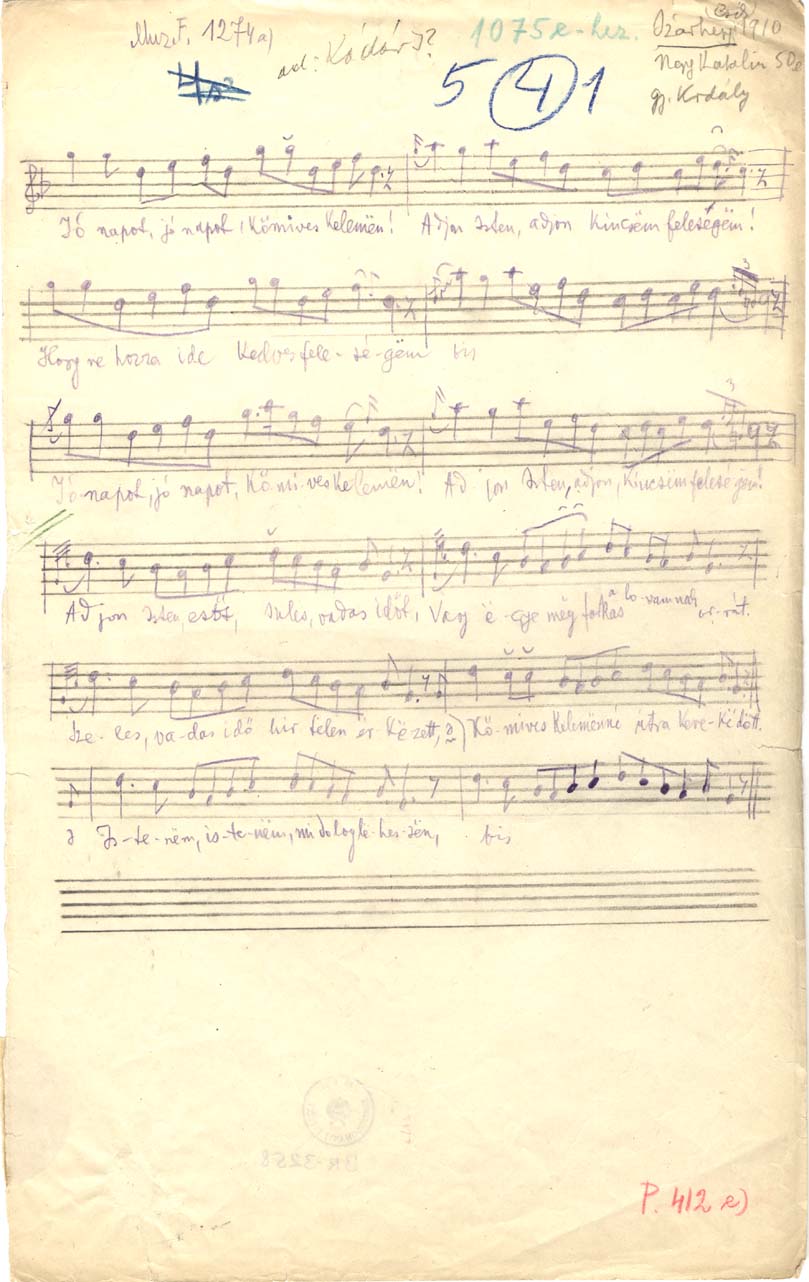 Muz.F. 1274a)
ad: Kádár J?
1075e-hez.
(Csík)
1910
Nagy Katalin 50é
gy. Kodály
5 (4) 1
Jó napot, jó napot, Kőmives Kelemën! Adjon Isten, adjon Kincsëm feleségëm!
Hogy ne hozza ide Kedves fele-sé-gëm bis
Jó-napot, jó napot, Kő-mi-ves Kelemën! Ad jon Isten, adjon, Kincsëm feleségëm!
Ad jon Isten, esőt, vadas időt, Vagy é-gye még farkas a lo-vamnak or-rát.
Sze-les, va-das idő hir telen ér kezett, Kő-mives Kelemënné útra kere-këdött.
Is-te-nëm, is-te-nëm, mi dolog lë-hes-sën, bis
BR-3258
P. 412 e)